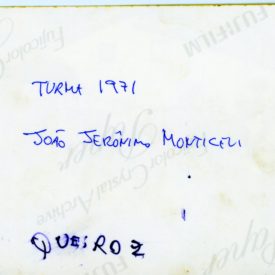 TURMA 1971
JOÃO JERÔNIMO MONTICELI
QUEIROZ
FUJIFILM
Fujicolor Crystal Archive Paper